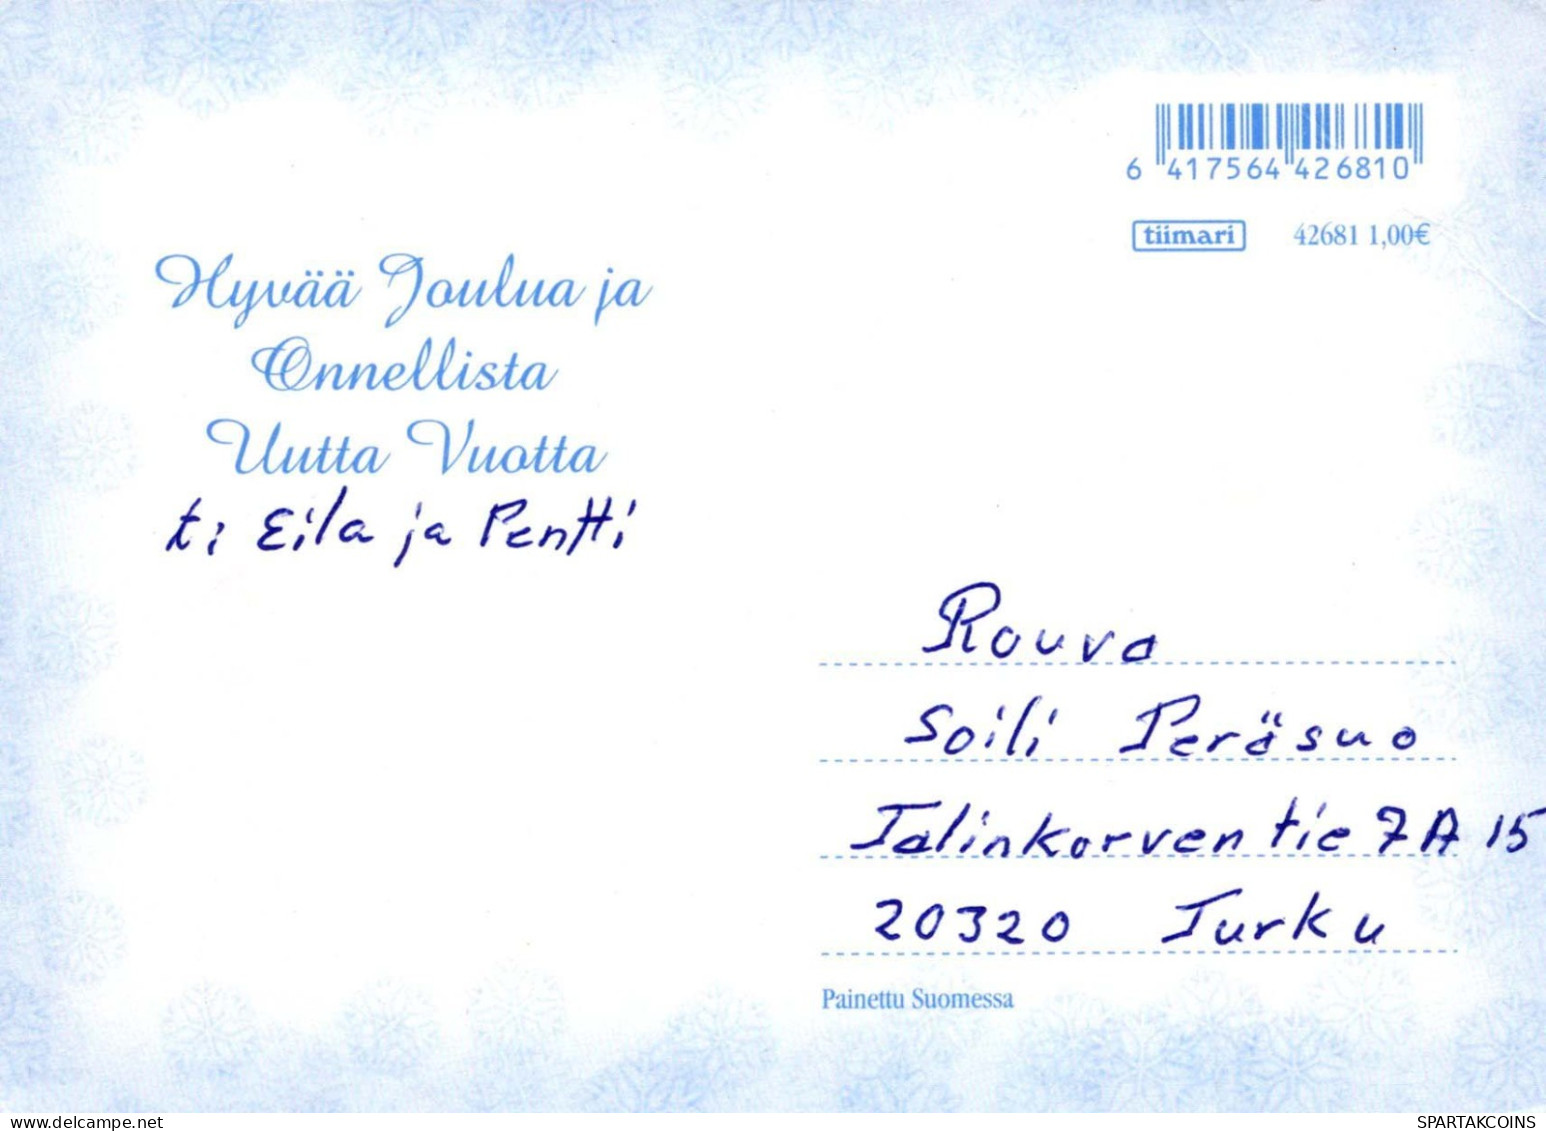 6 417564 426810
tiimari 42681 1,00€
Hyvää Joulua ja
Onnellista
Uutta Vuotta
t: Eila ja Pentti
Rouva
Soili Peräsuo
Talinkorventie 7 A 15
20320 Turku
Painettu Suomessa
delcampe.net
SPARTAKCOINS